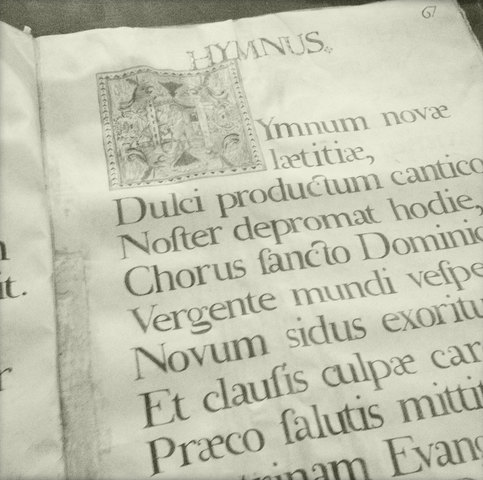 67
HYMNUS.
Ymnum novæ
lætitiæ,
Dulci productum cantico
Noſter depromat hodie,
Chorus ſancto Dominic
Vergente mundi veſpe
Novum sidus exoritu
Et clauſis culpæ car
Præco ſalutis mittit
trinam Evang
it.
r